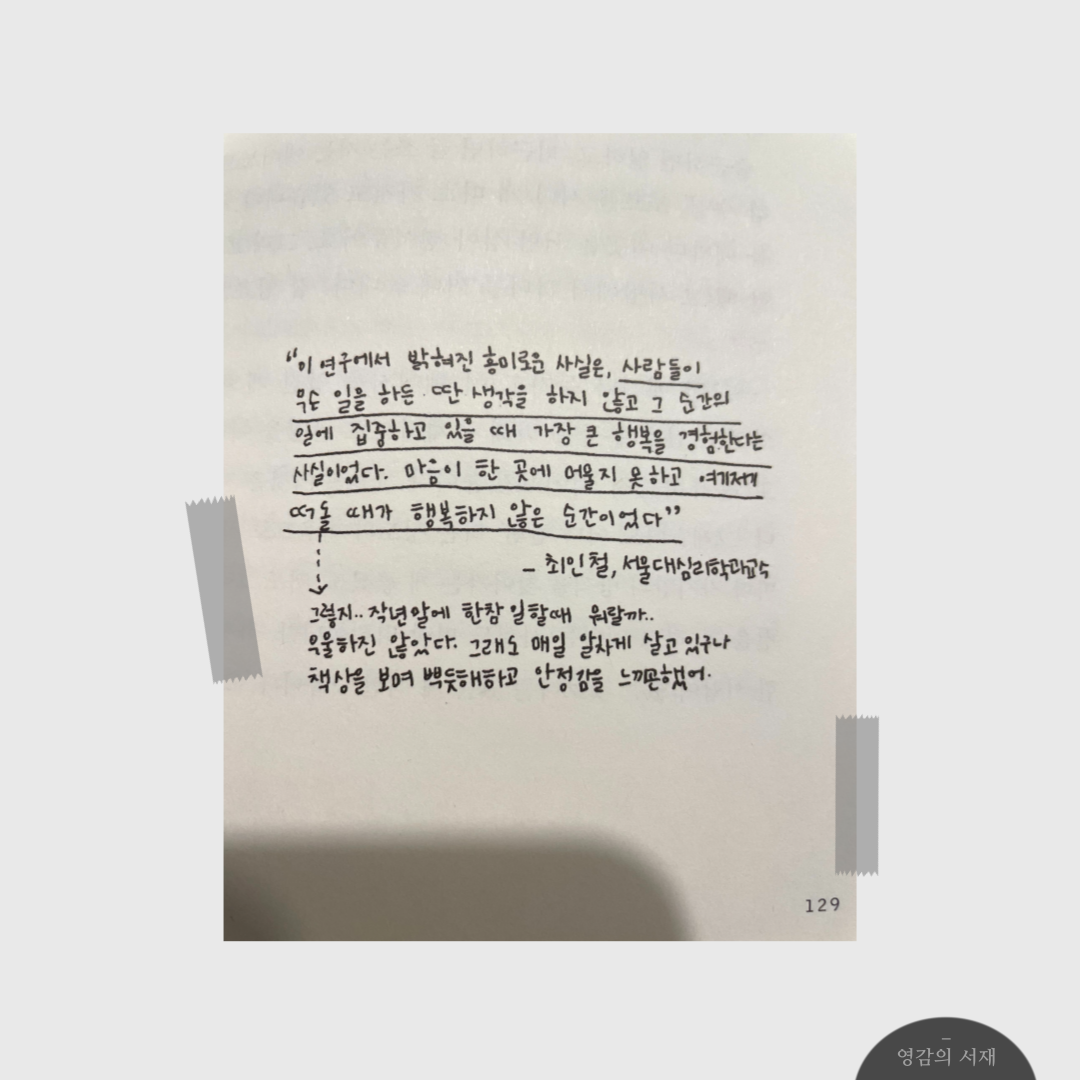 "이 연구에서 밝혀진 흥미로운 사실은, 사람들이
무슨 일을 하든 딴 생각을 하지 않고 그 순간의
일에 집중하고 있을 때 가장 큰 행복을 경험한다는
사실이었다. 마음이 한 곳에 머물지 못하고 여기저기
떠돌 때가 행복하지 않은 순간이었다"
- 최인철, 서울대심리학과교수
그렇지.. 작년말에 한참 일할때 뭐랄까..
우울하진 않았다. 그래도 매일 알차게 살고 있구나
책상을 보며 뿌듯해하고 안정감을 느끼곤했어.
129
영감의 서재